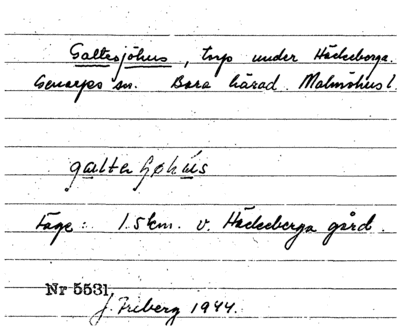 Galtasjöhus, torp under Häckeberga.
Genarps sn. Bara härad. Malmöhus l.
Läge: 1.5 km. v. Häckeberga gård.
Nr 5531.
J. Friberg 1944.